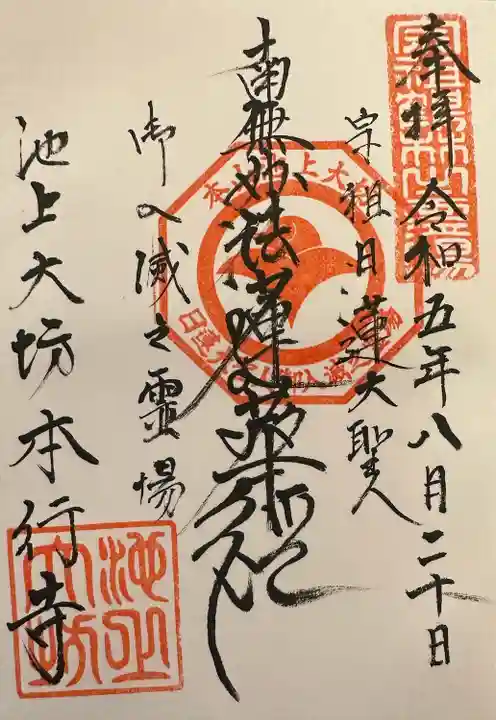 奉拝 令和五年八月二十日
宗祖日蓮大聖人
南無妙法蓮華経
御入滅之霊場
池上大坊本行寺
池上大坊